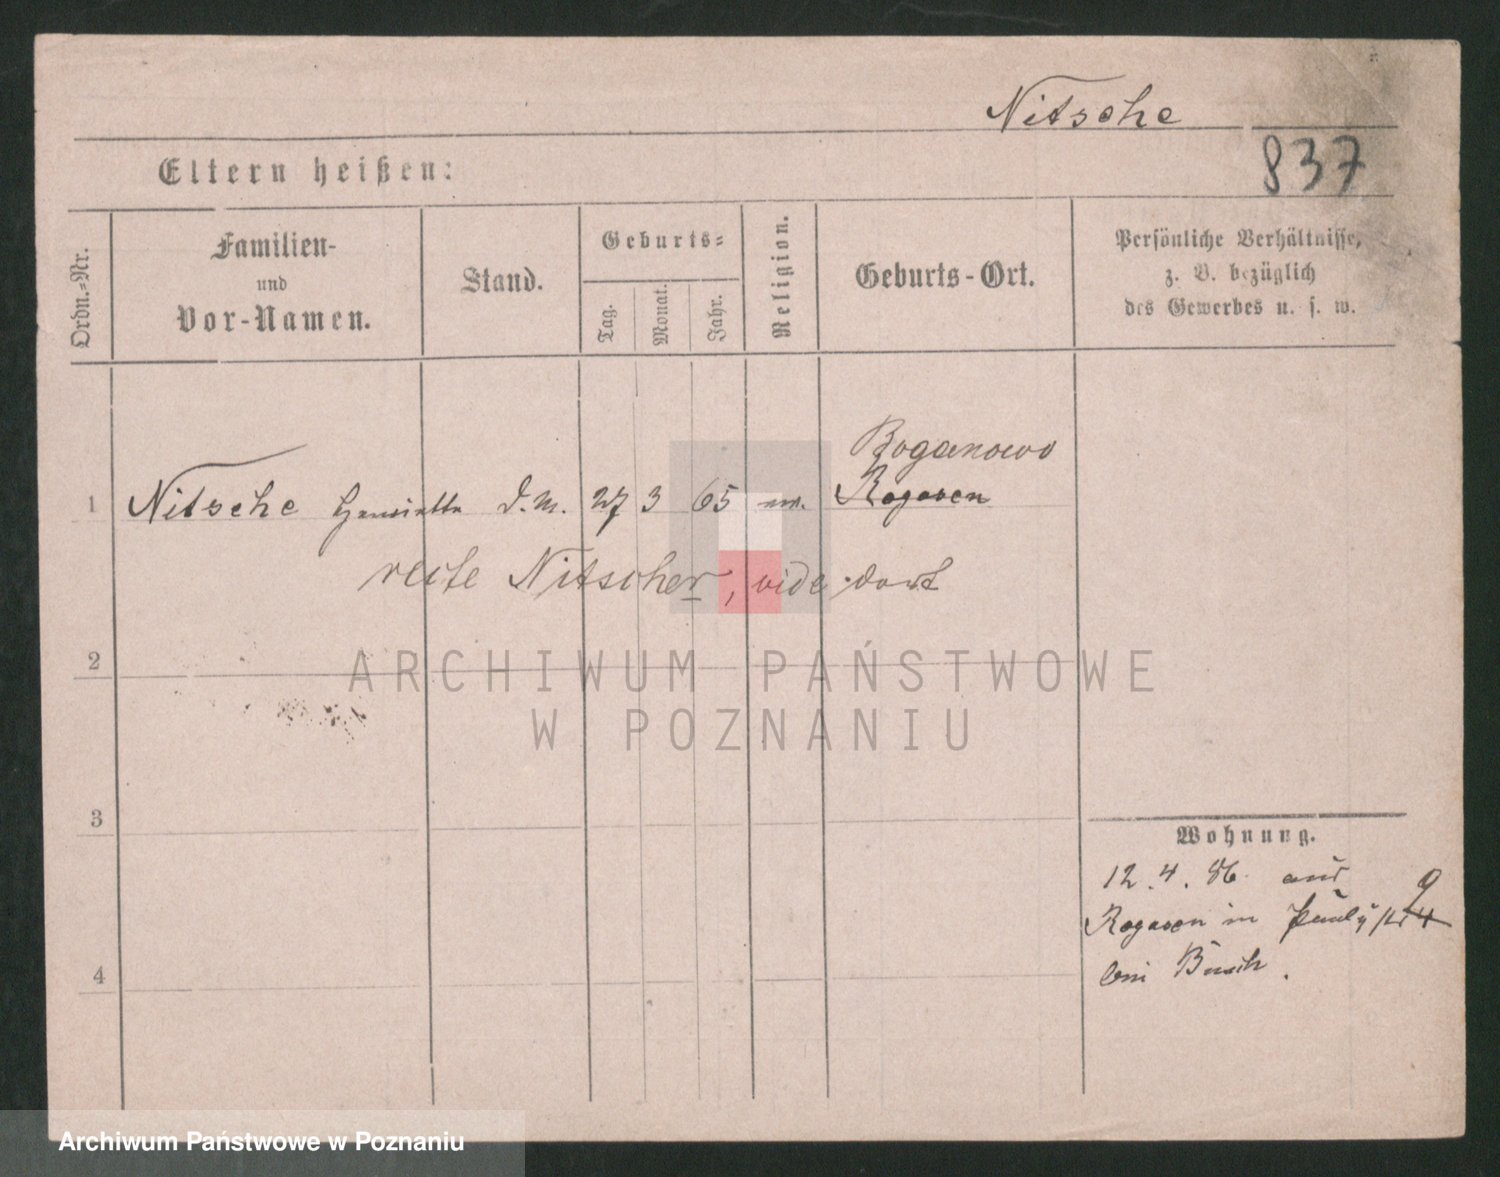 Nitsche
837
Eltern heißen:
Ordn.-Nr.
Familien-
und
Vor-Namen.
Stand.
Geburts-
Tag.
Monat.
Jahr.
Religion.
Geburts-Ort.
Persönliche Verhältnisse,
z. B. bezüglich
des Gewerbes u. s. w.
Boganowo
1 Nitsche Henriette D.M. 27 3 65 ev. Rogasen
recte Nitscher, vide dort
2
ARCHIWUM PAŃSTWOWE
W POZNANIU
3
4
Wohnung.
12.4.86 aus
9
Rogasen in 4
bei Busch.
Archiwum Państwowe w Poznaniu